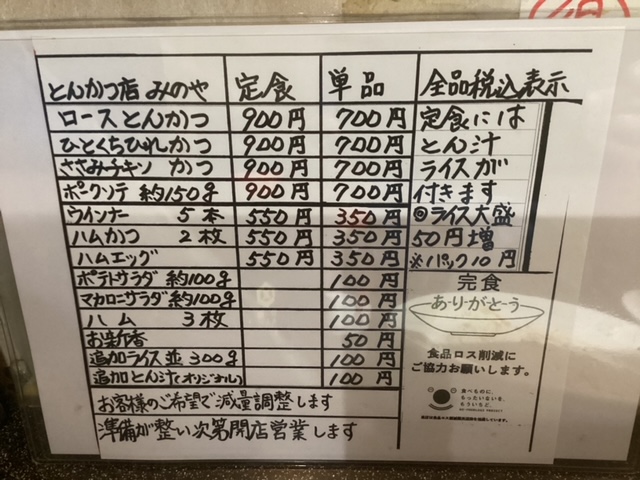 とんかつ店 みのや 定食 単品 全品税込表示
ロースとんかつ 900円 700円 定食には
ひとくちひれかつ 900円 700円 とん汁
ささみチキンかつ 900円 700円 ライスが
ポークソテ 約150g 900円 700円 付きます
ウインナー 5本 550円 350円 ◎ライス大盛
ハムかつ 2枚 550円 350円 50円増
ハムエッグ 550円 350円 ※パック10円
ポテトサラダ 約100g 100円
マカロニサラダ 約100g 100円
ハム 3枚 100円
お新香 50円
追加ライス並 300g 100円
追加とん汁(オリジナル) 100円
お客様のご希望で減量調整します
準備が整い次第開店営業します
完食
ありがとう
食品ロス削減に
ご協力お願いします。
食べものに、
もったいないを、
もういちど。
NO-FOODLOSS PROJECT